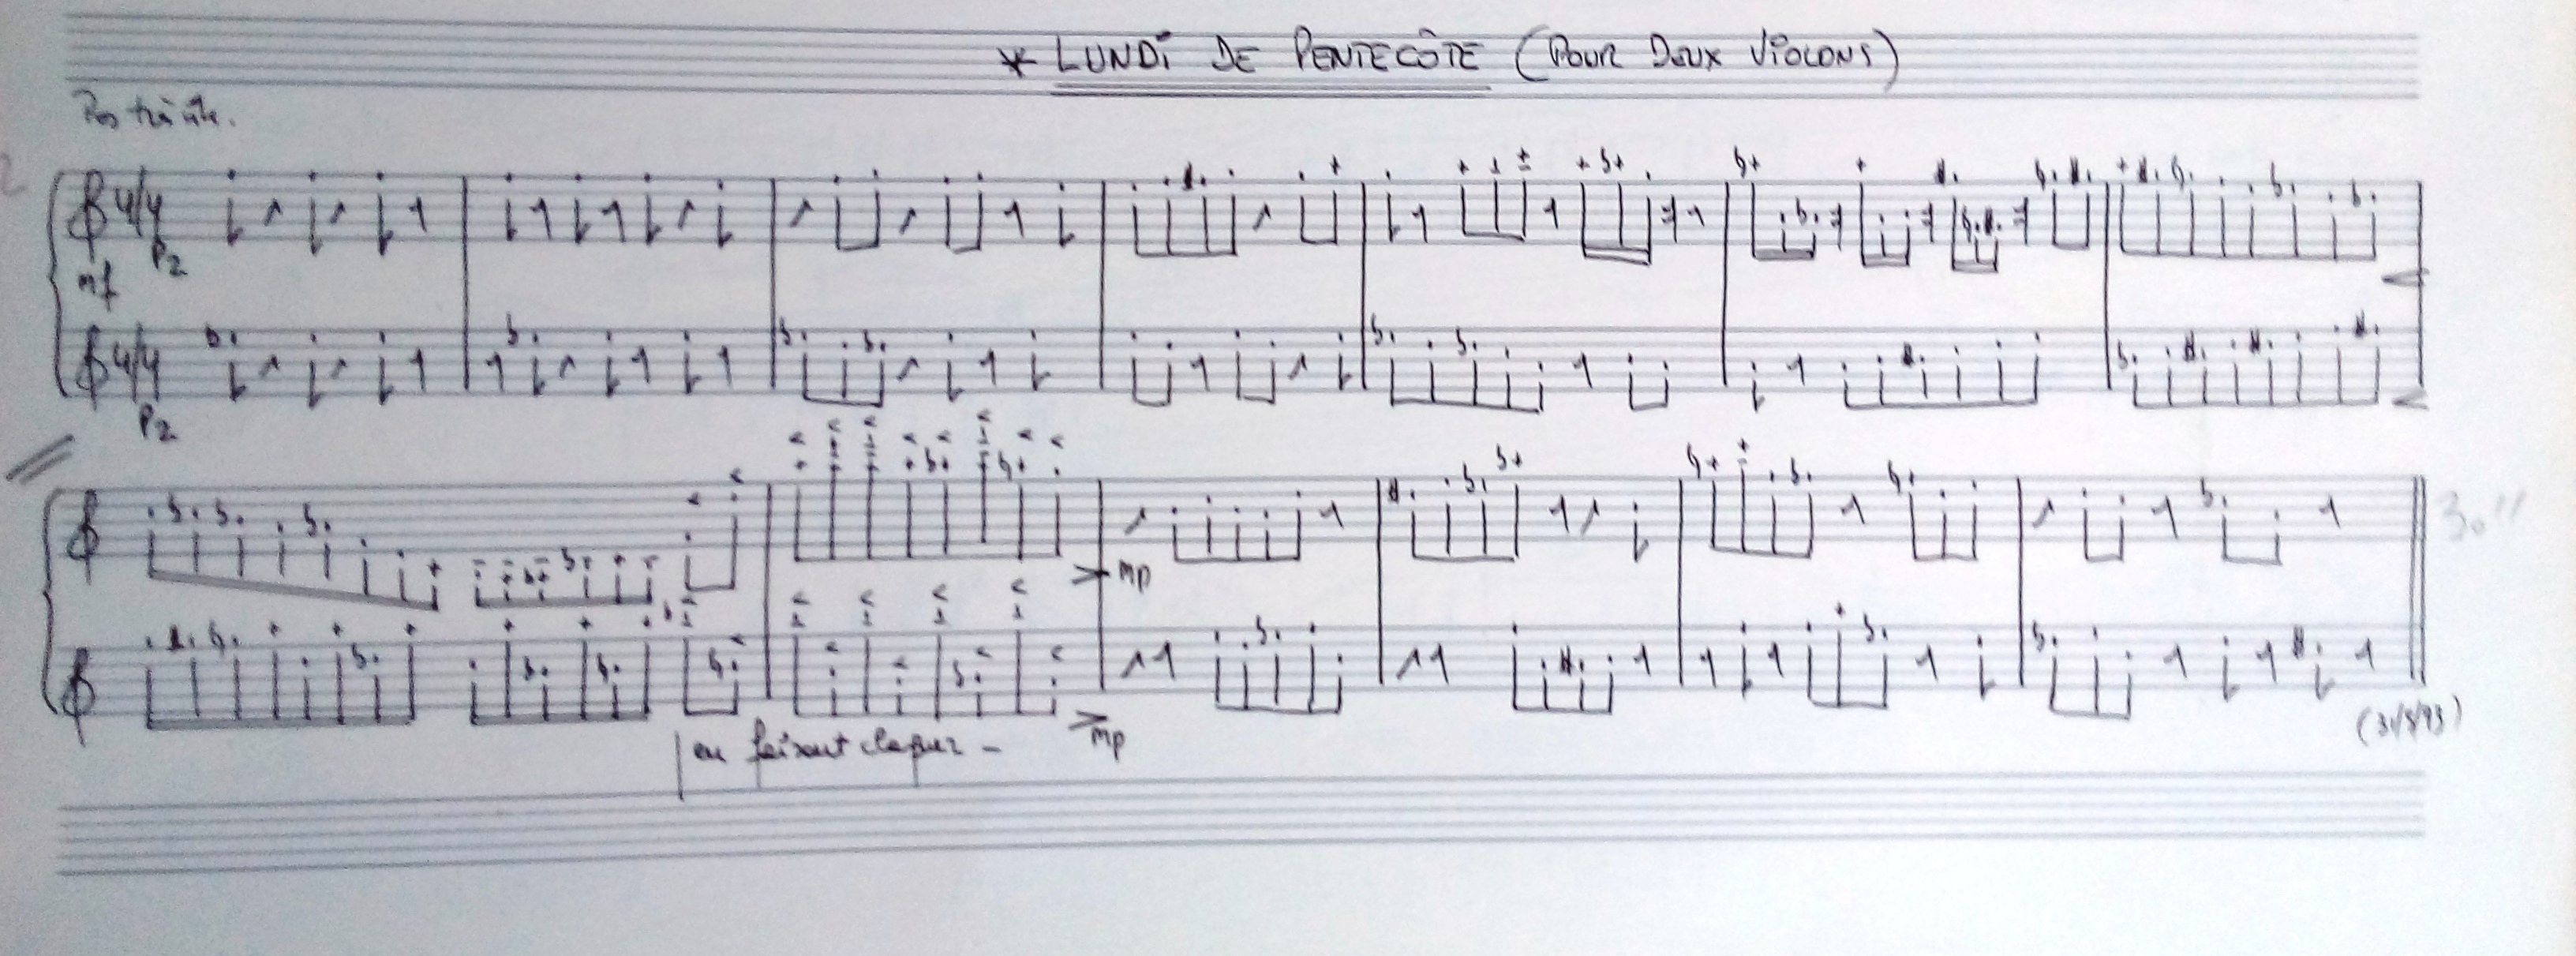 * LUNDI DE PENTECÔTE (POUR DEUX VIOLONS)
Pas trop vite.
4/4
Pz
mf
4/4
Pz
mp
30"
en faisant claquer -
mp
(31/5/93)